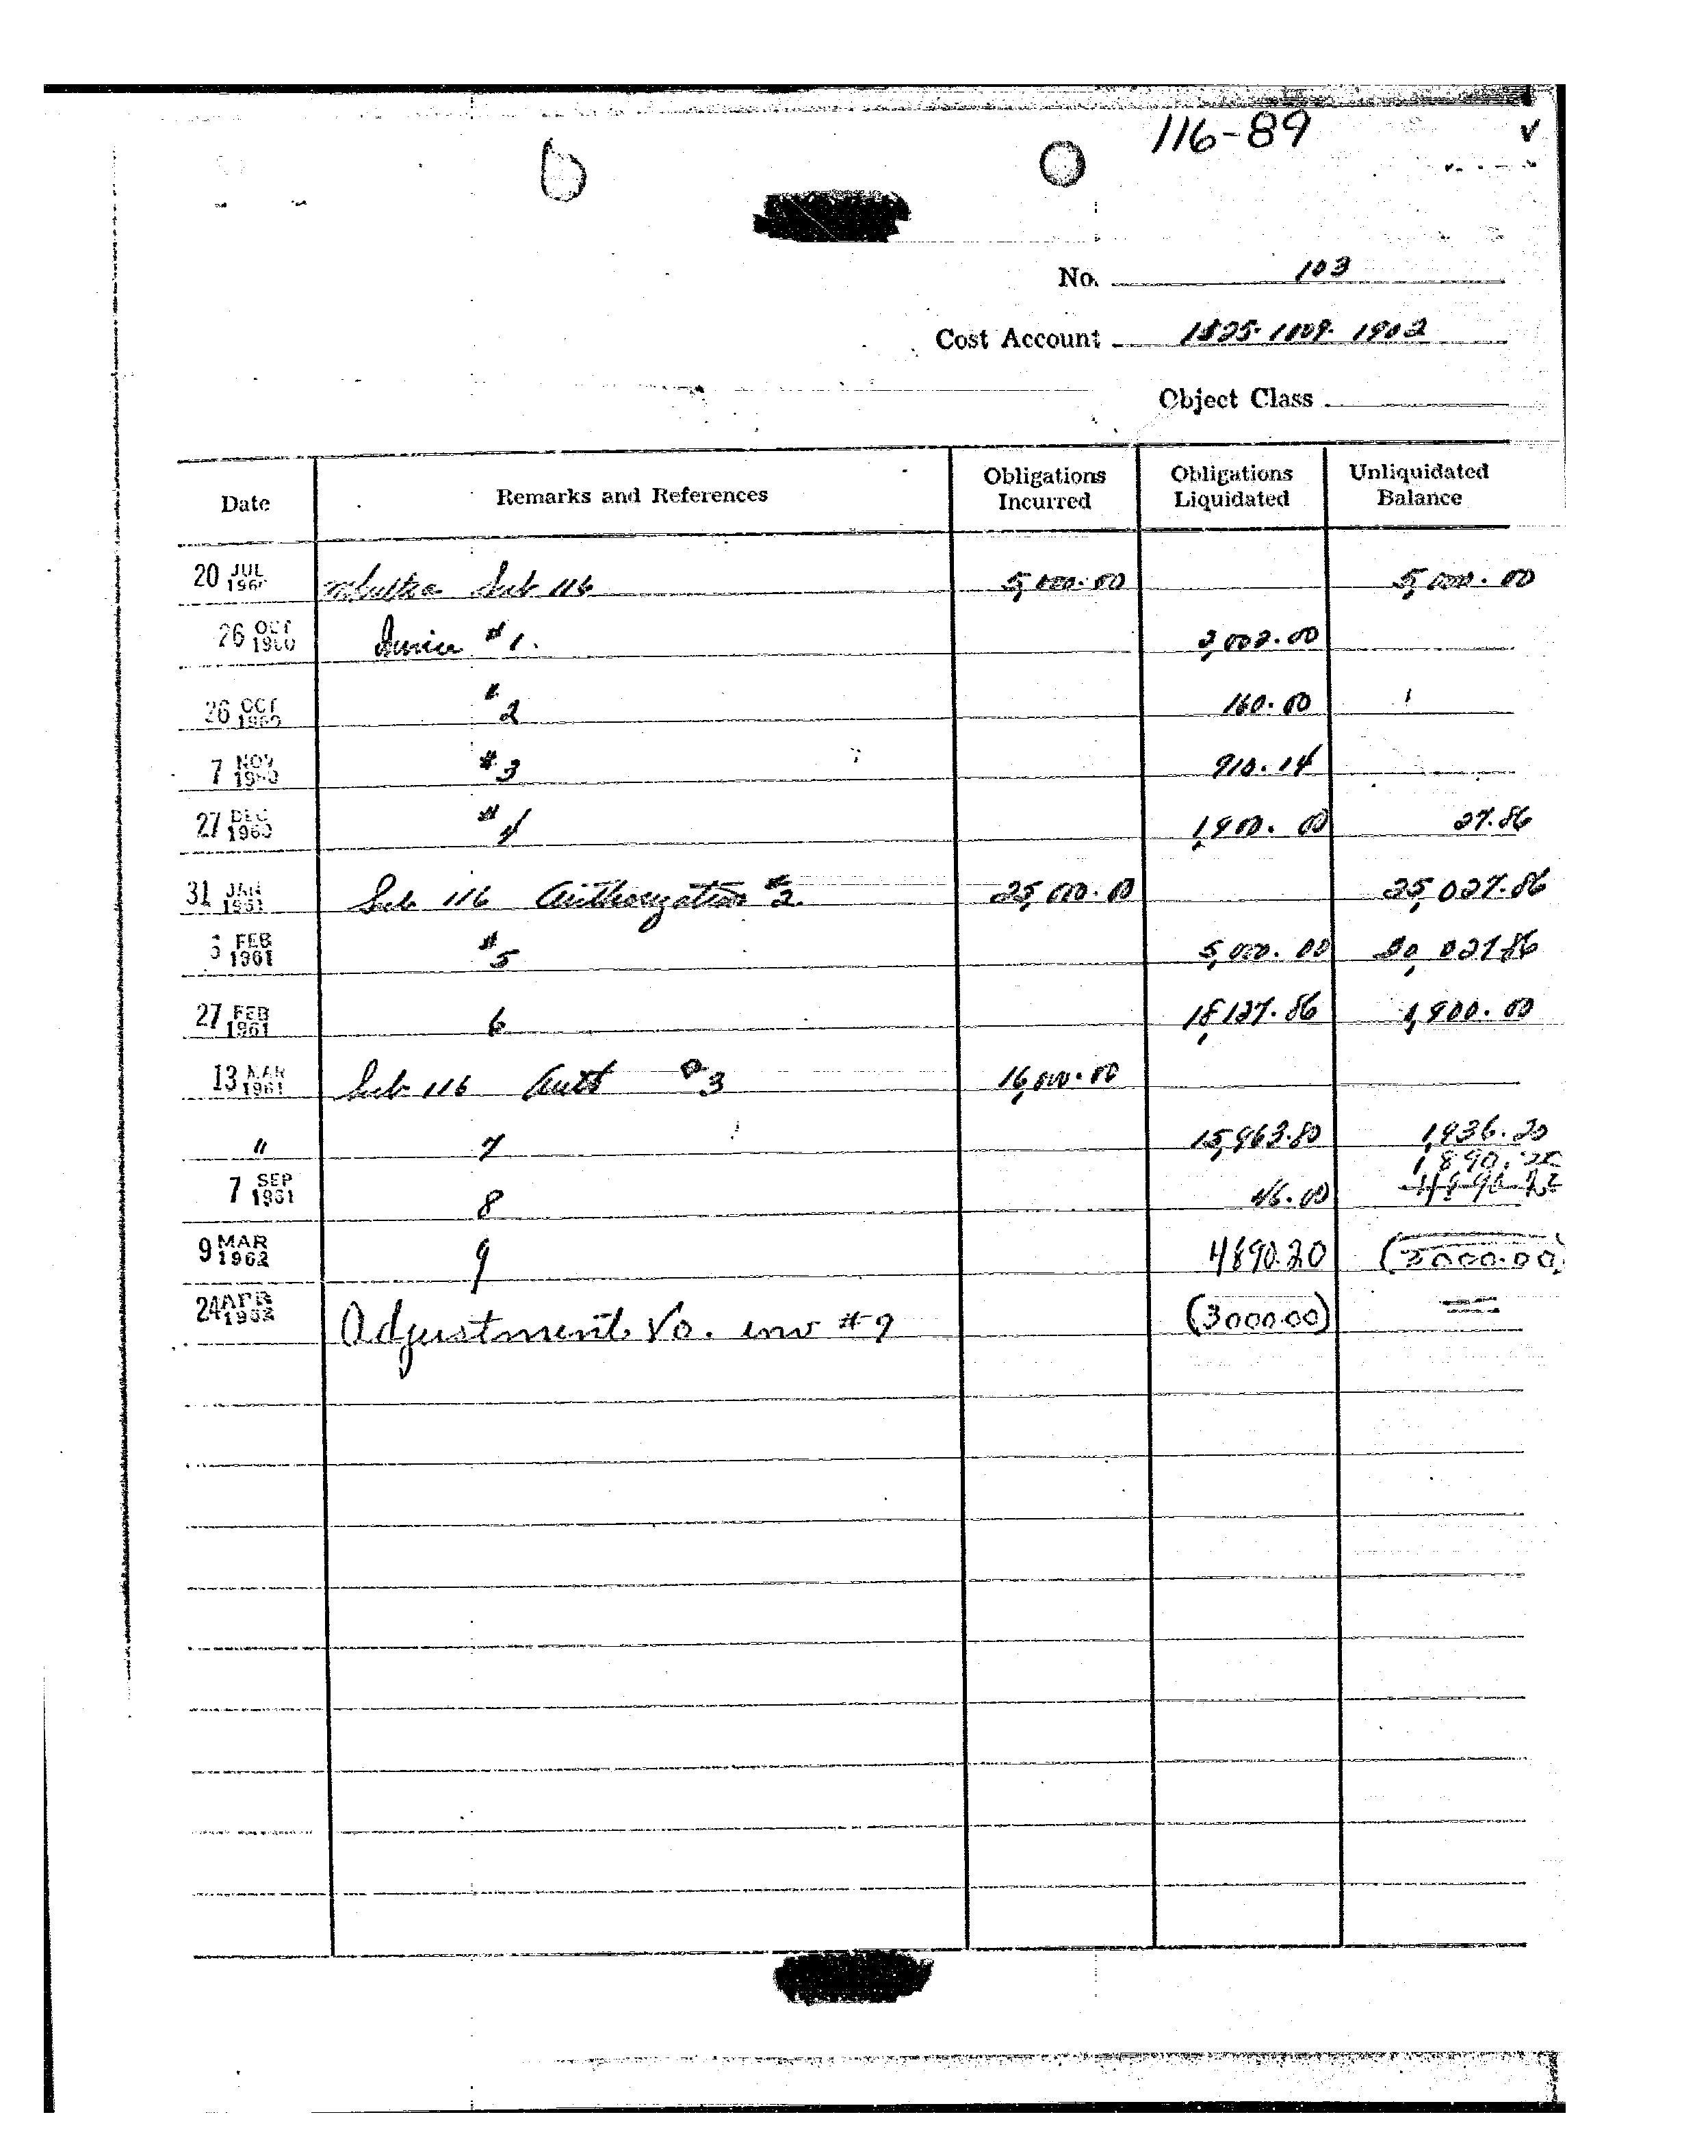 116-89
No. 103
Cost Account 1825-1009-1902
Object Class
Date Remarks and References Obligations Incurred Obligations Liquidated Unliquidated Balance
20 JUL 1960 Mkultra Sub 116 5,000.00 5,000.00
26 OCT 1960 Invoice #1. 2,002.00
26 OCT 1960 " 2 160.00
7 NOV 1960 #3 910.14
27 DEC 1960 #4 1,900.00 27.86
31 JAN 1961 Sub 116 Authorization #2 25,000.00 25,027.86
FEB 1961 #5 5,000.00 20,027.86
27 FEB 1961 6 18,127.86 1,900.00
13 MAR 1961 Sub 116 Auth #3 16,000.00
" 7 15,963.80 1,936.20
7 SEP 1961 8 46.00 1,890.20
9 MAR 1962 9 4890.20 (3000.00)
24 APR 1962 Adjustment Vo. inv #9 (3000.00) =